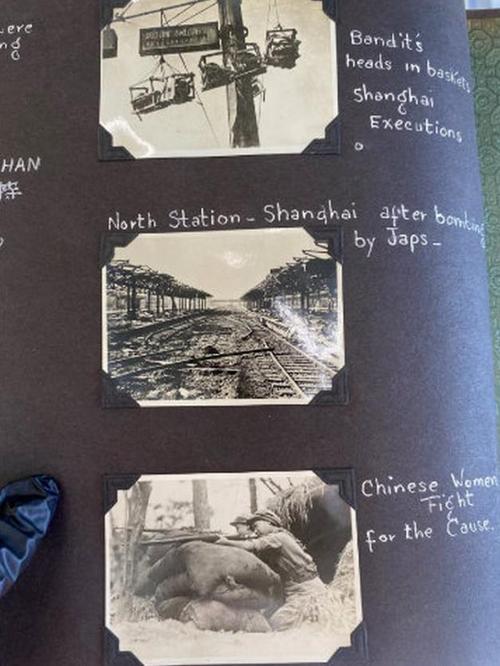 Bandit's
heads in baskets
Shanghai
Executions
HAN
North Station - Shanghai after bombing
by Japs -
Chinese Women
Fight
for the Cause.